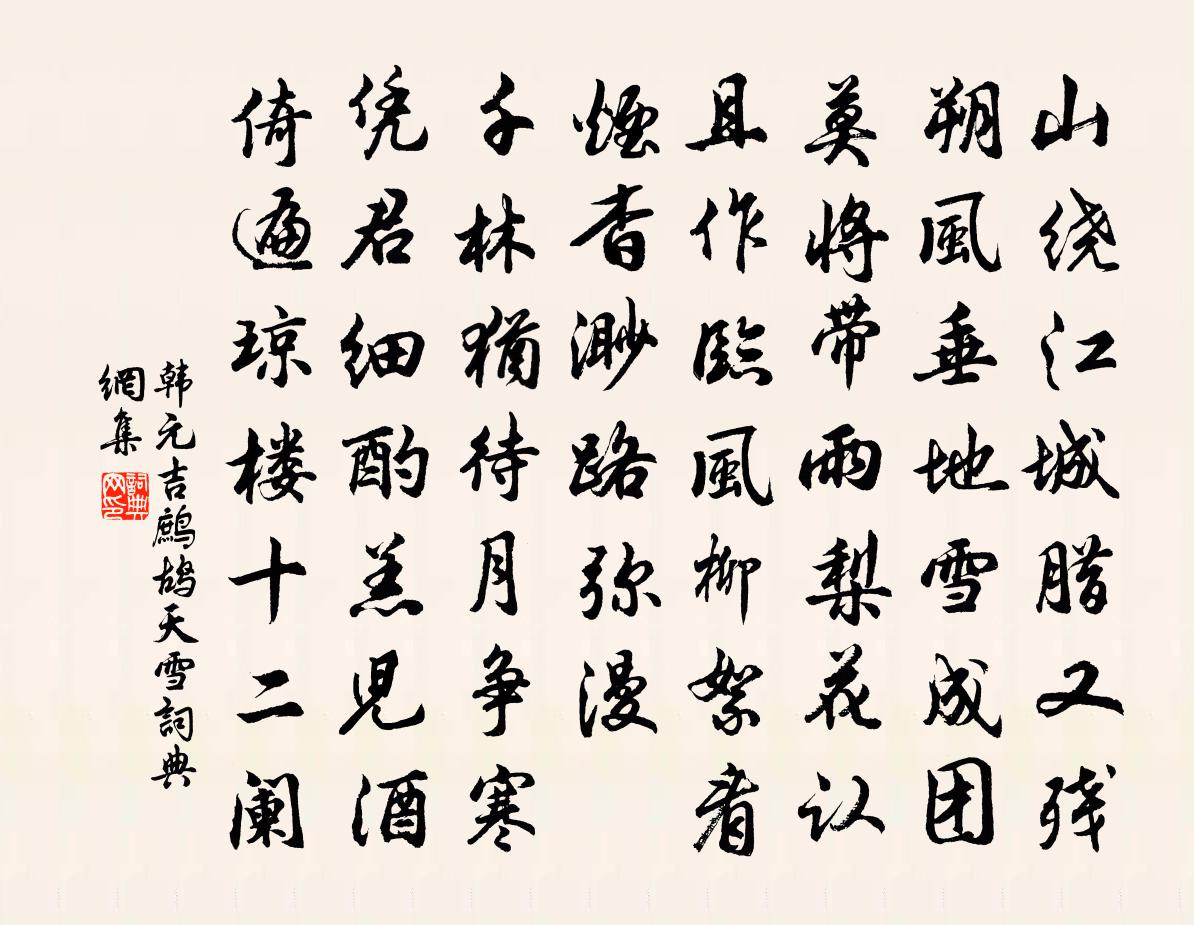 山绕江城腊又残
朔風垂地雪成团
莫将带雨梨花认
且作臨風柳絮看
煙杳渺路弥漫
千林犹待月争寒
凭君细酌羔児酒
倚遍琼楼十二阑
韩元吉鹧鸪天雪詞典
網集
詞典
网印